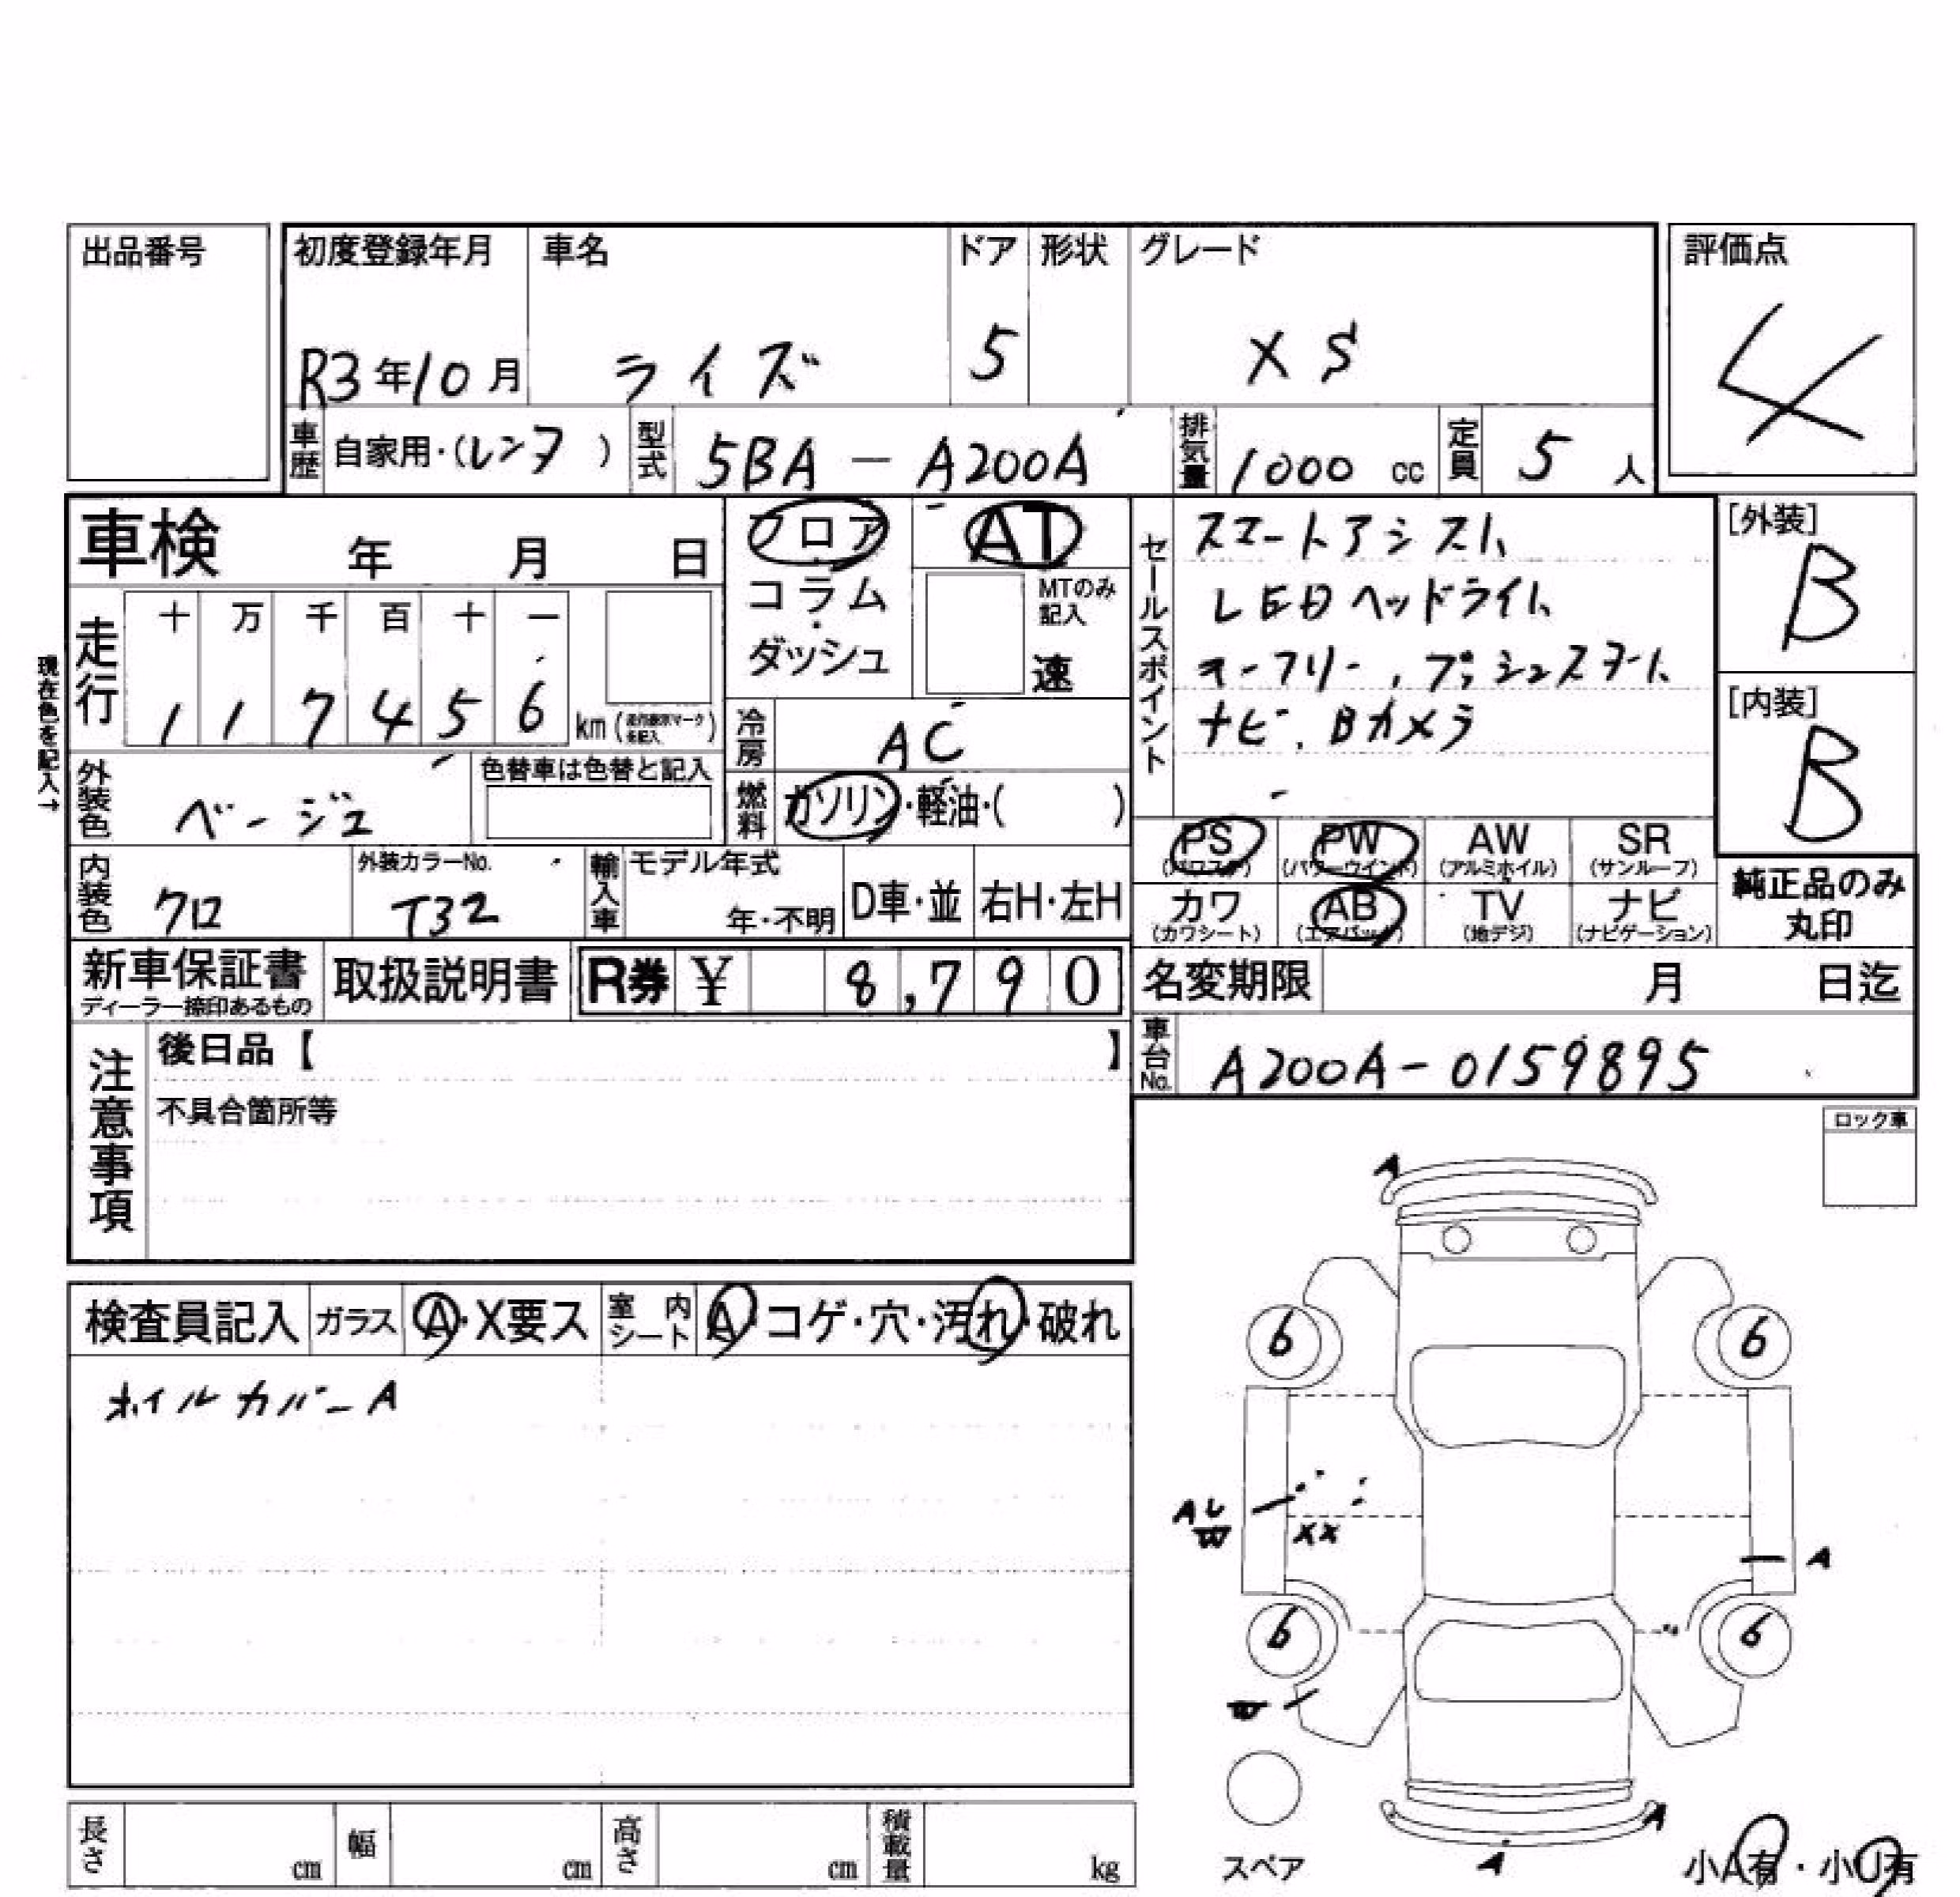 出品番号
初度登録年月 車名 ドア 形状 グレード
評価点
R3年10月 ライズ 5 XS
4
車歴 自家用・(レンタ) 型式 5BA-A200A 排気量 1000 cc 定員 5 人
車検 年 月 日
フロア・コラム・ダッシュ
AT
MTのみ記入
速
セールスポイント
スマートアシスト
LEDヘッドライト
キーフリー, プッシュスタート
ナビ, Bカメラ
[外装]
B
[内装]
B
現在色を記入→
走行 十 万 千 百 十 一
1 1 7 4 5 6 km
冷房 AC
燃料 ガソリン・軽油・( )
外装色 ベージュ 色替車は色替と記入
内装色 クロ 外装カラーNo. T32 輸入車 モデル年式 年・不明 D車・並 右H・左H
PS (パワステ) PW (パワーウインド) AW (アルミホイル) SR (サンルーフ)
カワ (カワシート) AB (エアバッグ) TV (地デジ) ナビ (ナビゲーション)
純正品のみ
丸印
新車保証書 取扱説明書 R券 ¥ 8,790
ディーラー捺印あるもの
名変期限 月 日迄
車台No. A200A-0159895
注意事項
後日品【 】
不具合箇所等
ロック車
検査員記入 ガラス A・X要ス 室内シート A・コゲ・穴・汚れ・破れ
ホイルカバーA
A
6 6
A
W
XX
A
6 6
W
A
A
スペア
小A有・小U有
長さ cm 幅 cm 高さ cm 積載量 kg